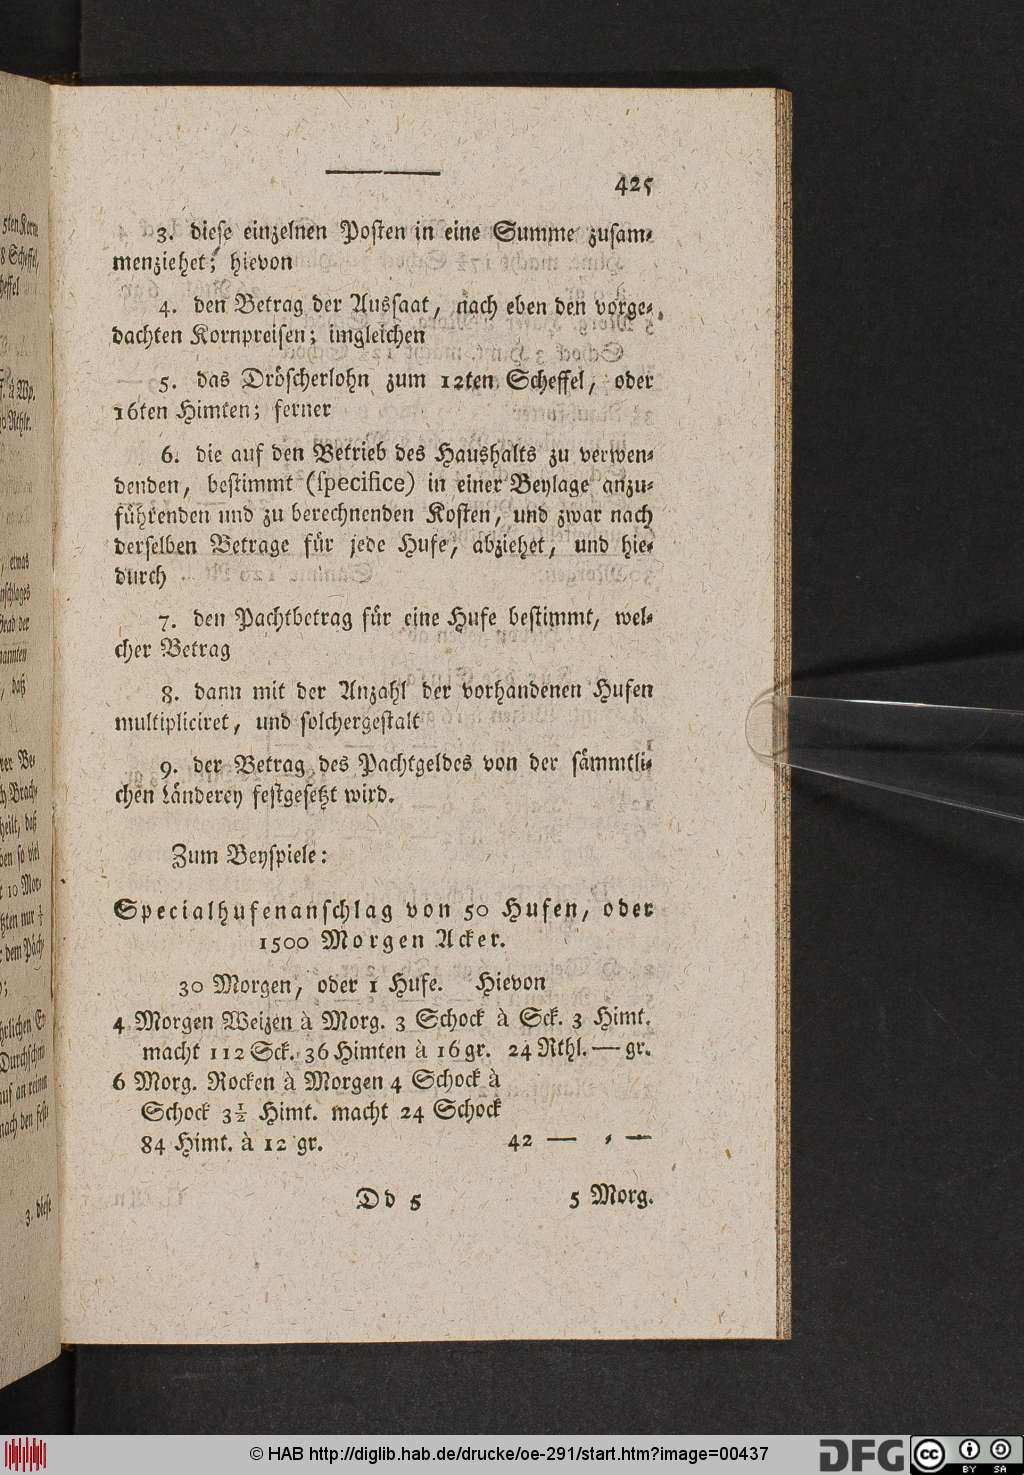 425
3. diese einzelnen Posten in eine Summe zusam-
menziehet; hievon
4. den Betrag der Aussaat, nach eben den vorge-
dachten Kornpreisen; imgleichen
5. das Dröscherlohn zum 12ten Scheffel, oder
16ten Himten; ferner
6. die auf den Betrieb des Haushalts zu verwen-
denden, bestimmt (specifice) in einer Beylage anzu-
führenden und zu berechnenden Kosten, und zwar nach
derselben Betrage für jede Hufe, abziehet, und hie-
durch
7. den Pachtbetrag für eine Hufe bestimmt, wel-
cher Betrag
8. dann mit der Anzahl der vorhandenen Hufen
multipliciret, und solchergestalt
9. der Betrag des Pachtgeldes von der sämmtli-
chen Länderey festgesetzt wird.
Zum Beyspiele:
Specialhufenanschlag von 50 Hufen, oder
1500 Morgen Acker.
30 Morgen, oder 1 Hufe. Hievon
4 Morgen Weizen à Morg. 3 Schock à Sck. 3 Himt.
macht 112 Sck. 36 Himten à 16 gr. 24 Rthl. — gr.
6 Morg. Rocken à Morgen 4 Schock à
Schock 3½ Himt. macht 24 Schock
84 Himt. à 12 gr. 42 — = —
Dd 5 5 Morg.
© HAB http://diglib.hab.de/drucke/oe-291/start.htm?image=00437
DFG
cc BY SA